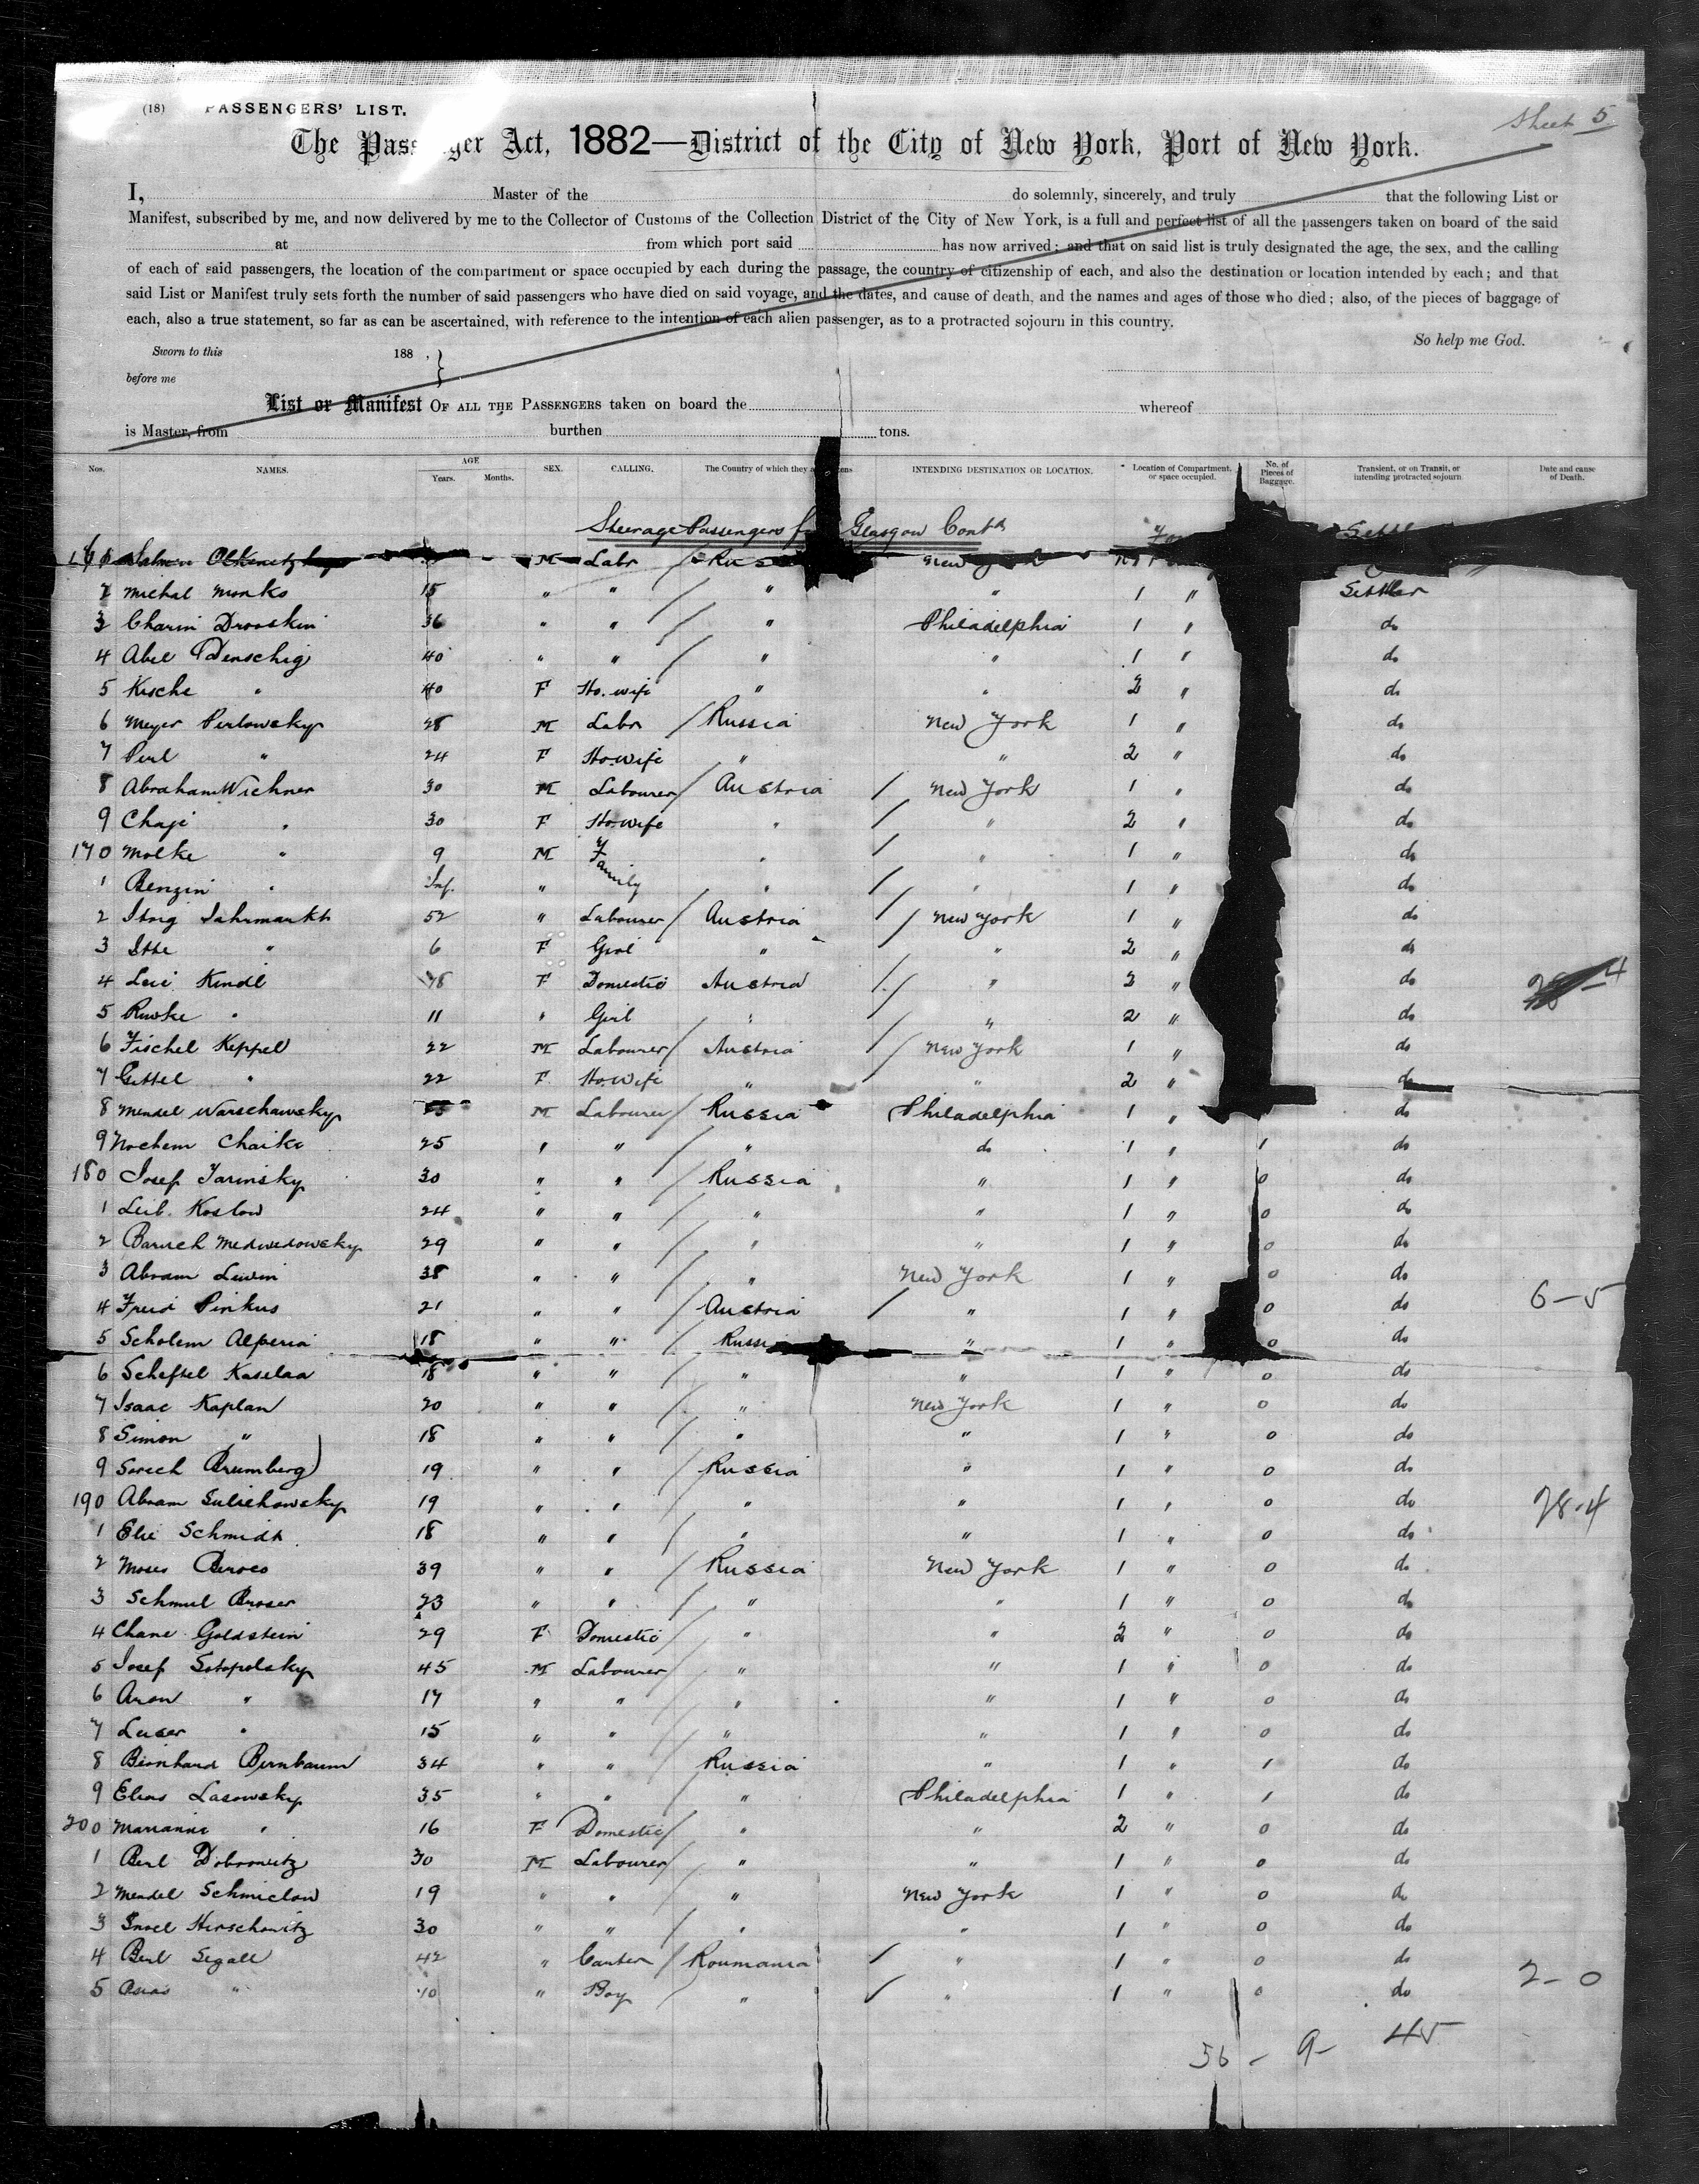 Sheet 5
(18) PASSENGERS' LIST.
The Pass ger Act, 1882—District of the City of New York, Port of New York.
I, Master of the do solemnly, sincerely, and truly that the following List or
Manifest, subscribed by me, and now delivered by me to the Collector of Customs of the Collection District of the City of New York, is a full and perfect list of all the passengers taken on board of the said
at from which port said has now arrived; and that on said list is truly designated the age, the sex, and the calling
of each of said passengers, the location of the compartment or space occupied by each during the passage, the country of citizenship of each, and also the destination or location intended by each; and that
said List or Manifest truly sets forth the number of said passengers who have died on said voyage, and the dates, and cause of death, and the names and ages of those who died; also, of the pieces of baggage of
each, also a true statement, so far as can be ascertained, with reference to the intention of each alien passenger, as to a protracted sojourn in this country.
So help me God.
Sworn to this 188 ,
before me
List or Manifest OF ALL THE PASSENGERS taken on board the whereof
is Master, from burthen tons.
Nos. NAMES. AGE Years. Months. SEX. CALLING. The Country of which they a tens INTENDING DESTINATION OR LOCATION. Location of Compartment, or space occupied. No. of Pieces of Baggage. Transient, or on Transit, or intending protracted sojourn. Date and cause of Death.
Steerage Passengers Glasgow Contd
M Labr / Rus New
2 Michal Monko 15 " " / " " 1 " Settler
3 Charin Drooskin 36 " " / " Philadelphia 1 " do
4 Abel Denschig 40 " " / " " 1 " do
5 Kische " 40 F Ho. wife " " 2 " do
6 Meyer Perlowsky 28 M Labr / Russia New York 1 " do
7 Perl " 24 F Ho wife " " 2 " do
8 Abraham Wichner 30 M Labourer / Austria / New York 1 " do
9 Chaje " 30 F Ho wife " / " 2 " do
170 Malke " 9 M Family " / " 1 " do
1 Benzin " Inf. " " / " 1 " do
2 Itzig Jahrmarkt 52 " Labourer / Austria / New York 1 " do
3 Itte " 6 F Girl " / " 2 " do
4 Leie Kindl 48 F Domestic Austria / " 2 " do
5 Rivke " 11 " Girl " / " 2 " do
6 Fischel Keppel 22 M Labourer / Austria / New York 1 " do
7 Gittel " 22 F Ho. wife " / " 2 " do
8 Mendel Warschawsky M Labourer / Russia Philadelphia 1 " do
9 Nochem Chaike 25 " " / " do 1 " 1 do
180 Josef Jarinsky 30 " " / Russia " 1 " 0 do
1 Leib Koslow 24 " " / " " 1 " 0 do
2 Baruch Medwedowsky 29 " " / " " 1 " 0 do
3 Abram Lewin 38 " " / " New York 1 " 0 do
4 Freid Pinkus 21 " " / Austria / " 1 " 0 do 6-5
5 Scholem Alperin 18 " " / Russi " 1 " 0 do
6 Scheftel Kaselaa 18 " " / " " 1 " 0 do
7 Isaac Kaplan 20 " " / " New York 1 " 0 do
8 Simon " 18 " " / " " 1 " 0 do
9 Sorech Brumberg 19 " " / Russia " 1 " 0 do
190 Abram Sulichowsky 19 " " / " " 1 " 0 do 28-4
1 Elie Schmidt 18 " " / " " 1 " 0 do
2 Moses 39 " " / Russia New York 1 " 0 do
3 Schmul Broser 23 " " / " " 1 " 0 do
4 Chane Goldstein 29 F Domestic / " " 2 " 0 do
5 Josef Sotopolsky 45 M Labourer / " " 1 " 0 do
6 Aron " 17 " " / " " 1 " 0 do
7 Leiser " 15 " " / " " 1 " 0 do
8 Bernhard Birnbaum 34 " " / Russia " 1 " 1 do
9 Elias Lasowsky 35 " " / " Philadelphia 1 " 1 do
200 Marianne " 16 F Domestic / " " 2 " 0 do
1 Berl Dobrowitz 30 M Labourer / " " 1 " 0 do
2 Mendel Schmiclow 19 " " / " New York 1 " 0 do
3 Hirschowitz 30 " " / " " 1 " 0 do
4 Berl Segall 42 " Canter / Roumania / " 1 " 0 do
5 " 10 " Boy / " / " 1 " 0 do 2-0
56 - 9- 45